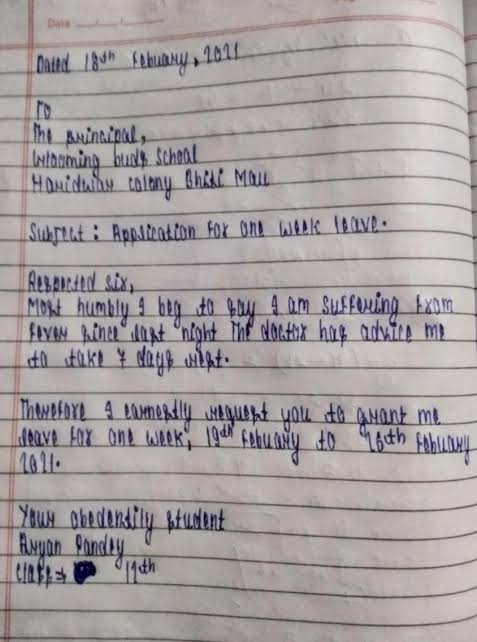 Date
Dated 18th Febuary, 2021
To
The principal,
Blooming buds School
Haridwar colony Bhiti Mau
Subject : Application for one week leave.
Respected sir,
Most humbly I beg to say I am suffering from
fever since last night The doctor has advice me
to take 7 days rest.
Therefore I earnertly request you to grant me
leave for one week, 19th febuary to 26th febuary
2021.
Your obedentily student
Aryan Pandey
Class → 11th